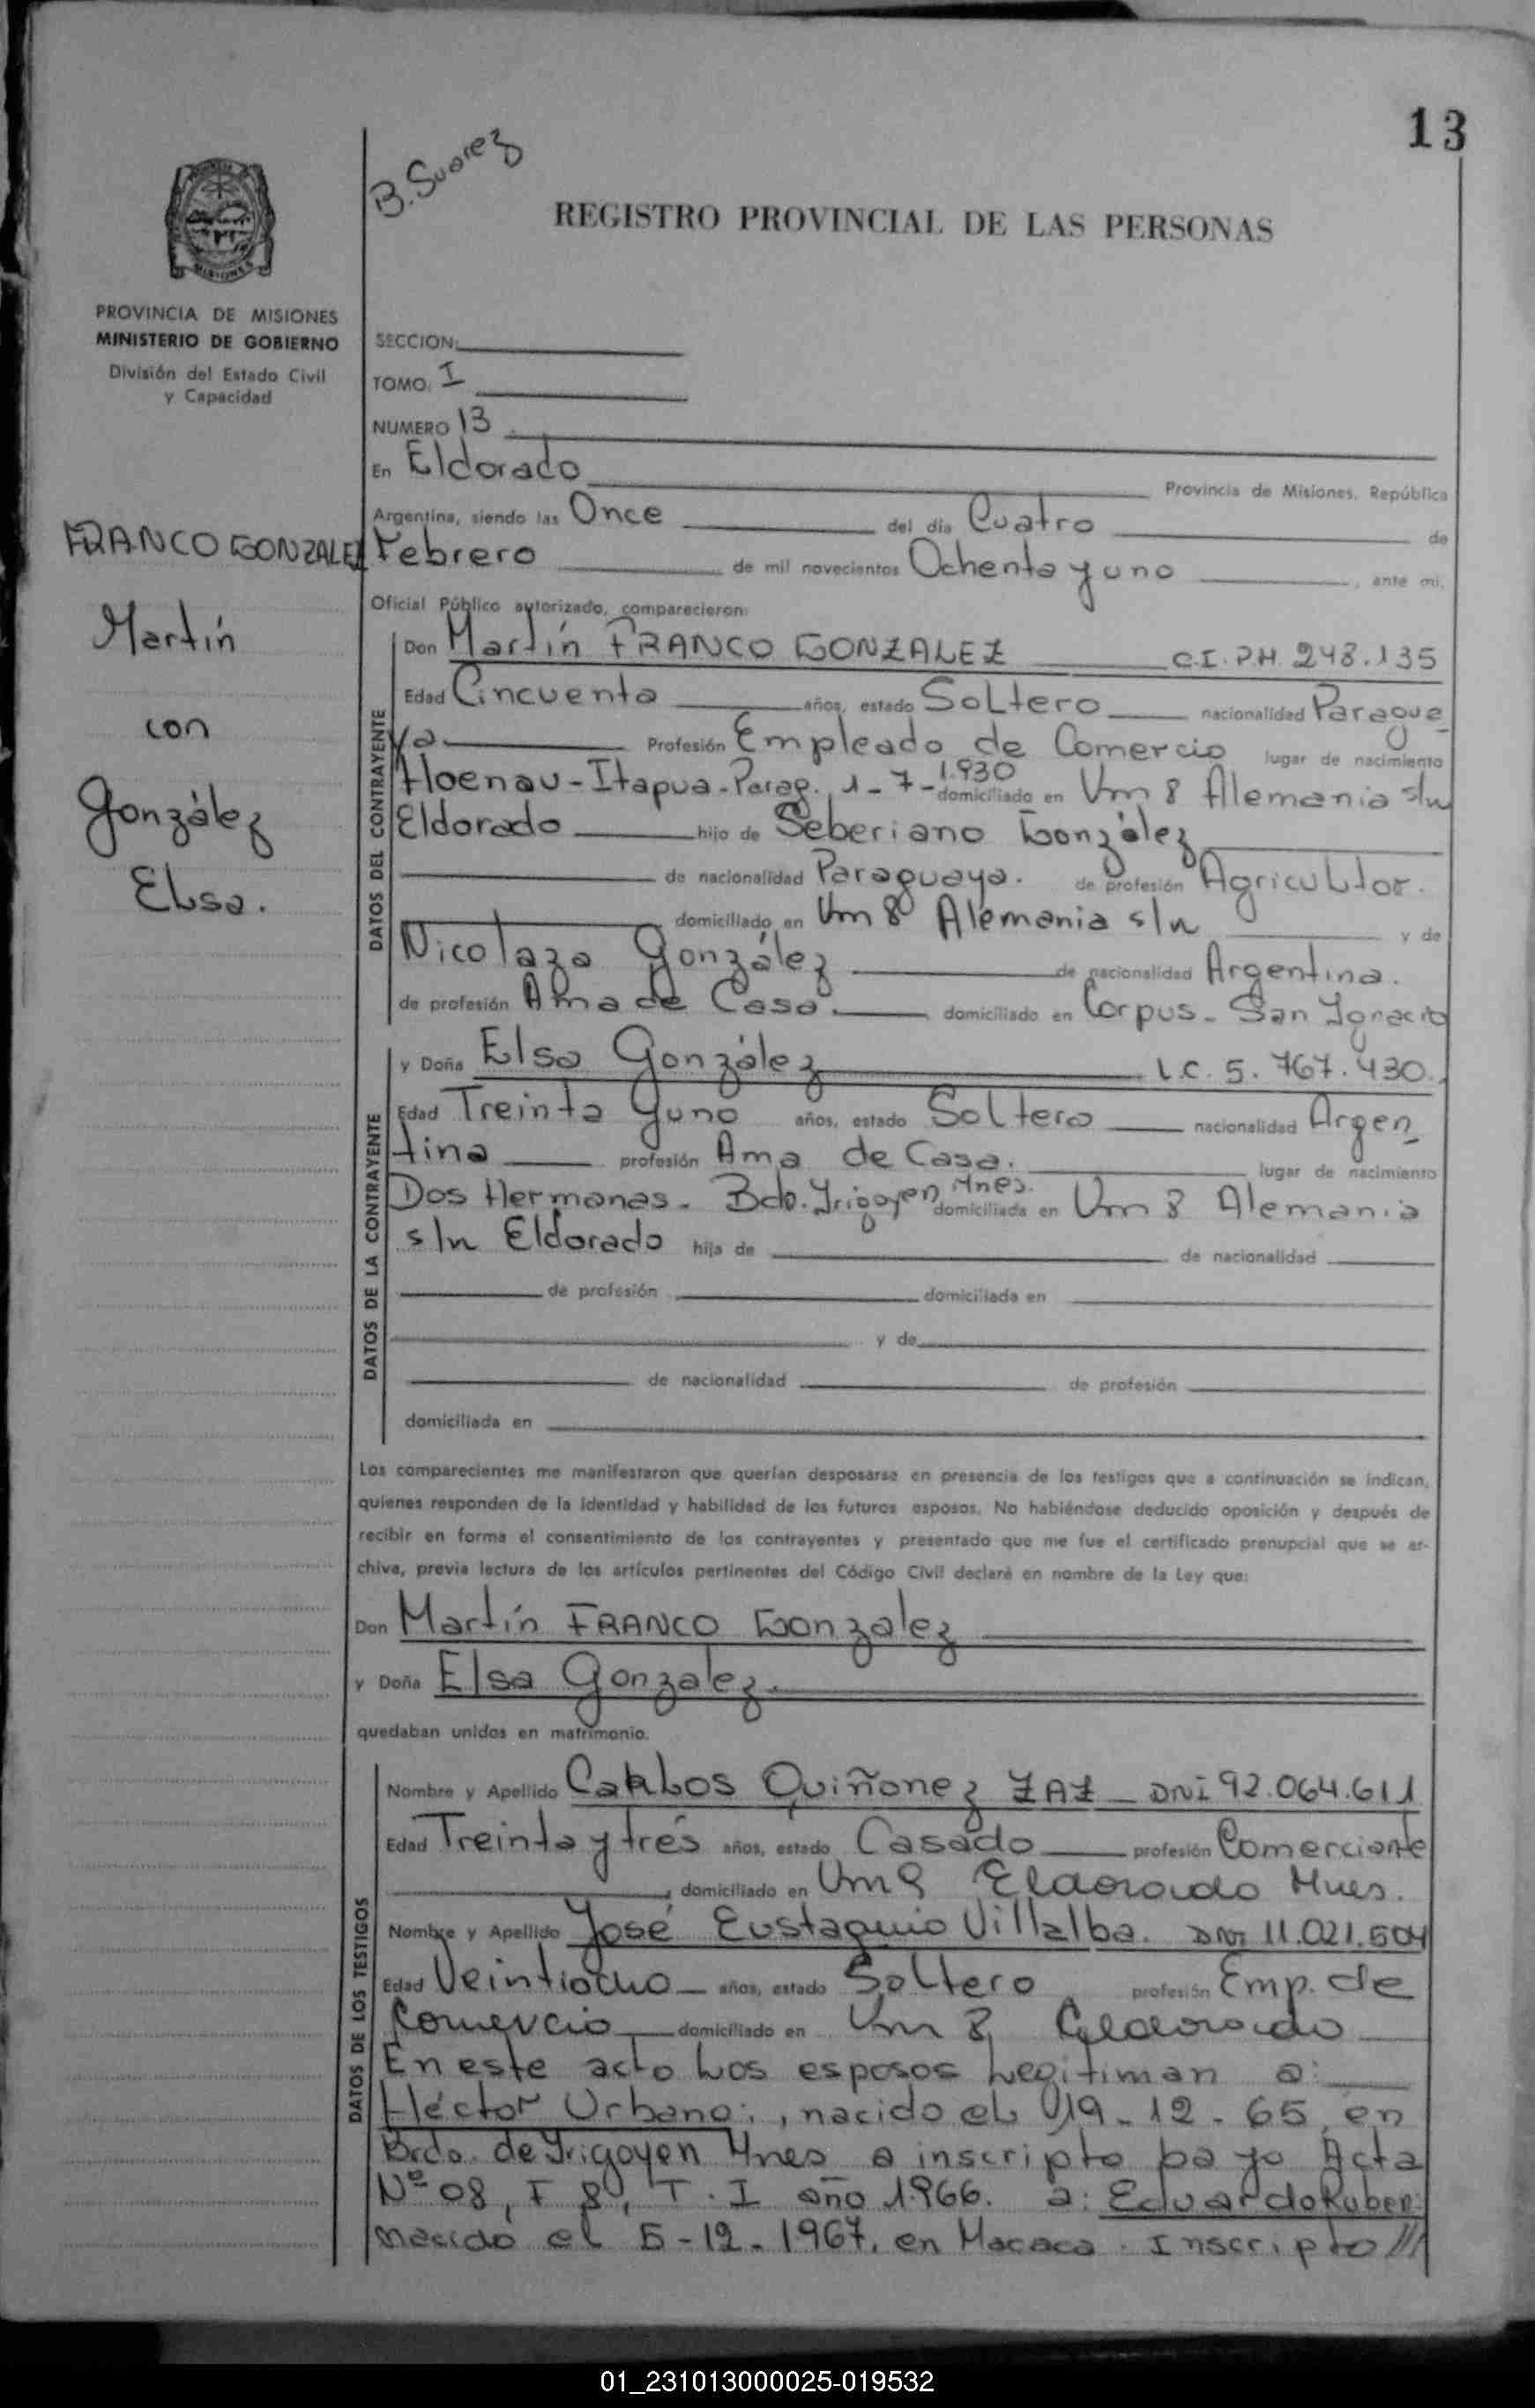 13
B. Suarez
REGISTRO PROVINCIAL DE LAS PERSONAS
MISIONES
PROVINCIA DE MISIONES
MINISTERIO DE GOBIERNO
División del Estado Civil
y Capacidad
SECCION:
TOMO: I
NUMERO 13
En Eldorado Provincia de Misiones, República
Argentina, siendo las Once del día Cuatro de
Febrero de mil novecientos Ochenta y uno, ante mi,
Oficial Público autorizado, comparecieron:
FRANCO GONZALEZ
Martín
con
González
Elsa.
DATOS DEL CONTRAYENTE
Don Martín FRANCO GONZALEZ C.I. P.H. 248.135
Edad Cincuenta años, estado Soltero nacionalidad Paragua-
ya Profesión Empleado de Comercio lugar de nacimiento
Hoenau - Itapua - Parag. 1 - 7 - 1.930 domiciliado en Km 8 Alemania s/n
Eldorado hijo de Seberiano González
de nacionalidad Paraguaya. de profesión Agricultor.
domiciliado en Km 8 Alemania s/n y de
Nicolaza González de nacionalidad Argentina.
de profesión Ama de Casa. domiciliado en Corpus - San Ignacio
DATOS DE LA CONTRAYENTE
y Doña Elsa González L.C. 5.767.430.
Edad Treinta y uno años, estado Soltera nacionalidad Argen-
tina profesión Ama de Casa. lugar de nacimiento
Dos Hermanas - Bdo. Irigoyen, Mnes. domiciliada en Km 8 Alemania
s/n Eldorado hija de de nacionalidad
de profesión domiciliada en
y de
de nacionalidad de profesión
domiciliada en
Los comparecientes me manifestaron que querían desposarse en presencia de los testigos que a continuación se indican,
quienes responden de la identidad y habilidad de los futuros esposos. No habiéndose deducido oposición y después de
recibir en forma el consentimiento de los contrayentes y presentado que me fue el certificado prenupcial que se ar-
chiva, previa lectura de los artículos pertinentes del Código Civil declaré en nombre de la Ley que:
Don Martín FRANCO Gonzalez
y Doña Elsa Gonzalez.
quedaban unidos en matrimonio.
DATOS DE LOS TESTIGOS
Nombre y Apellido Carlos Quiñonez ZAZ - DNI 92.064.611
Edad Treinta y tres años, estado Casado profesión Comerciante
, domiciliado en Km 9 Eldorado Mnes.
Nombre y Apellido José Eustaquio Villalba. DNI 11.021.504
Edad Veintiocho años, estado Soltero profesión Emp. de
Comercio domiciliado en Km 8 Eldorado
En este acto Los esposos Legitiman a:
Héctor Urbano:, nacido el 19 - 12 - 65, en
Brdo. de Irigoyen Mnes e inscripto bajo Acta
Nº 08, F 8, T. I año 1.966. a: Eduardo Ruben:
nacido el 5 - 12 - 1967, en Macaca. Inscripto ///
01_231013000025-019532